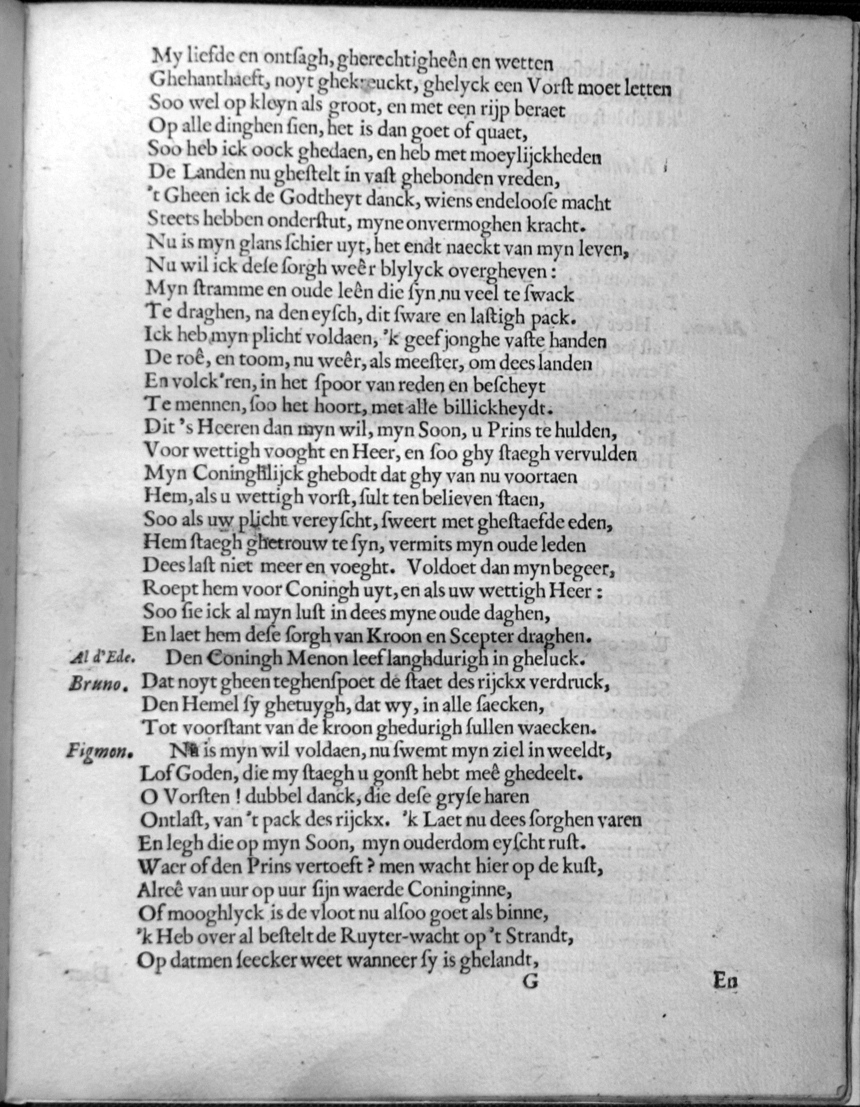 My liefde en ontſagh, gherechtigheên en wetten
Ghehanthaeft, noyt ghekreuckt, ghelyck een Vorſt moet letten
Soo wel op kleyn als groot, en met een rijp beraet
Op alle dinghen ſien, het is dan goet of quaet,
Soo heb ick oock ghedaen, en heb met moeylijckheden
De Landen nu gheſtelt in vaſt ghebonden vreden,
't Gheen ick de Godtheyt danck, wiens endelooſe macht
Steets hebben onderſtut, myne onvermoghen kracht.
Nu is myn glans ſchier uyt, het endt naeckt van myn leven,
Nu wil ick deſe ſorgh weêr blylyck overgheven:
Myn ſtramme en oude leên die ſyn nu veel te ſwack
Te draghen, na den eyſch, dit ſware en laſtigh pack.
Ick heb myn plicht voldaen, 'k geef jonghe vaſte handen
De roê, en toom, nu weêr, als meeſter, om dees landen
En volck'ren, in het ſpoor van reden en beſcheyt
Te mennen, ſoo het hoort, met alle billickheydt.
Dit 's Heeren dan myn wil, myn Soon, u Prins te hulden,
Voor wettigh vooght en Heer, en ſoo ghy ſtaegh vervulden
Myn Coninghlijck ghebodt dat ghy van nu voortaen
Hem, als u wettigh vorſt, ſult ten believen ſtaen,
Soo als uw plicht vereyſcht, ſweert met gheſtaefde eden,
Hem ſtaegh ghetrouw te ſyn, vermits myn oude leden
Dees laſt niet meer en voeght. Voldoet dan myn begeer,
Roept hem voor Coningh uyt, en als uw wettigh Heer:
Soo ſie ick al myn luſt in dees myne oude daghen,
En laet hem deſe ſorgh van Kroon en Scepter draghen.
Al d'Ede. Den Coningh Menon leef langhdurigh in gheluck.
Bruno. Dat noyt gheen teghenſpoet de ſtaet des rijckx verdruck,
Den Hemel ſy ghetuygh, dat wy, in alle ſaecken,
Tot voorſtant van de kroon ghedurigh ſullen waecken.
Figmon. Nu is myn wil voldaen, nu ſwemt myn ziel in weeldt,
Lof Goden, die my ſtaegh u gonſt hebt meê ghedeelt.
O Vorſten! dubbel danck, die deſe gryſe haren
Ontlaſt, van 't pack des rijckx. 'k Laet nu dees ſorghen varen
En legh die op myn Soon, myn ouderdom eyſcht ruſt.
Waer of den Prins vertoeft? men wacht hier op de kuſt,
Alreê van uur op uur ſijn waerde Coninginne,
Of mooghlyck is de vloot nu alſoo goet als binne,
'k Heb over al beſtelt de Ruyter-wacht op 't Strandt,
Op datmen ſeecker weet wanneer ſy is ghelandt,
G En